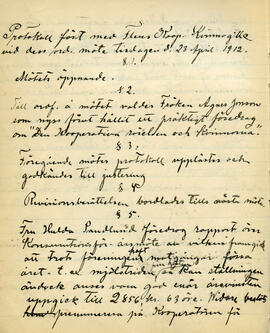 Protokoll fört med Flens Koop. Kvinnogille
vid dess ord. möte tisdagen d. 23 April 1912.
§ 1.
Mötets öppnande.
§ 2.
Till ordf. å mötet valdes Fröken Agnes Jonson
som nyss förut hållet ett präktigt föredrag
om "Den Kooperativa rörelsen och kvinnorna".
§ 3.
Föregående mötes protokoll upplästes och
godkändes till justering
§ 4
Revisionsberättelsen bordlades tills nästa möte
§ 5.
Fru Hulda Sandlund föredrog rapport öm
Konsumtionsför. årsmöte av vilken framgick
att trots föreningens motgångar i första
året t. ex mjölstriden så kan ställningen
ändock anses vara god enär årsvinsten
uppgick till 2856 kr. 63 öre. Vidare
prenumerera på Kooperatören för